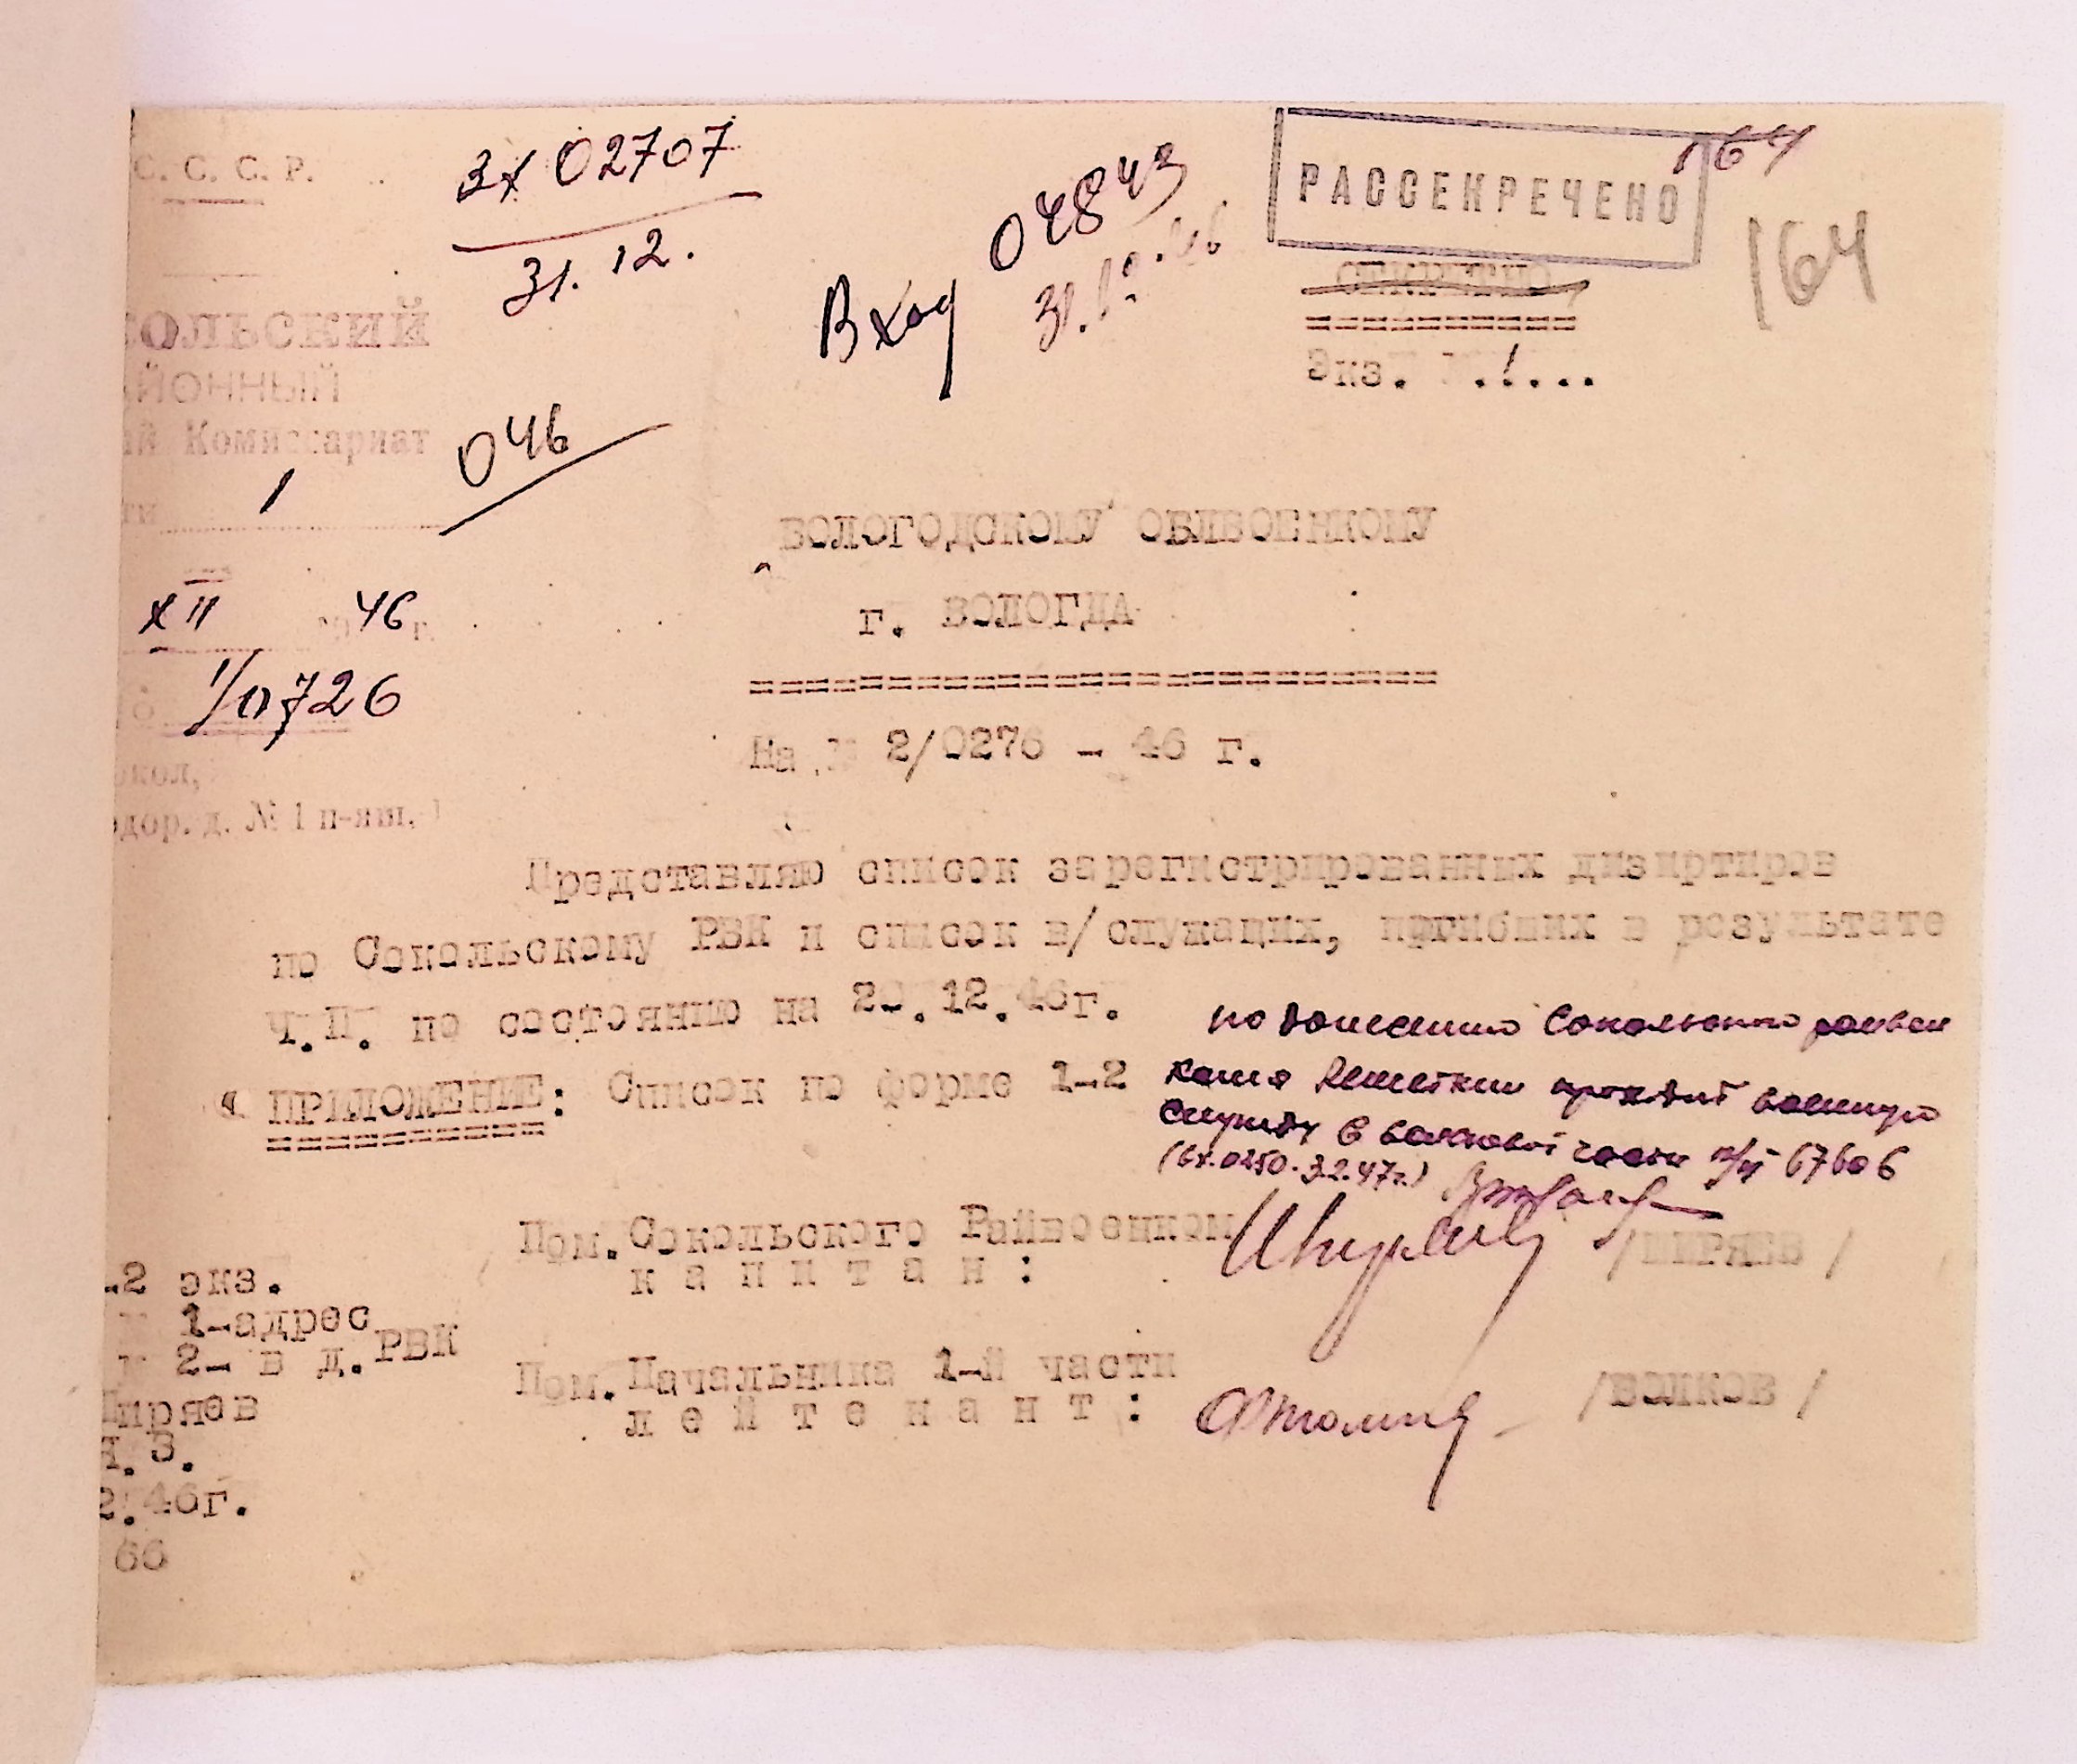 С. С. С. Р.
Вх 02707
31. 12.
Вход 04843
31.12.46
РАССЕКРЕЧЕНО
164
164
СЕКРЕТНО
===========
Экз. .1...
ОЛЬСКИЙ
ЙОННЫЙ
ий Комиссариат
046
ти 1
XII 1946 г.
1/0726
окол,
одор. д. № 1 п-ящ. 1
ВОЛОГОДСКОМУ ОБЛВОЕНКОМУ
г. ВОЛОГДА
=========================
На № 2/0276 - 46 г.
Представляю список зарегистрированных дизиртиров
по Сокольскому РВК и список в/служащих, погибших в результате
Ч.П. по состоянию на 20.12.46г.
ПРИЛОЖЕНИЕ: Список по форме 1-2
==========
по донесению Сокольского райвоен
кома Решеткин проходит военную
службу в войсковой части п/п 67606
(Вх.0250. 3.2.47г.)
Пом. Сокольского Райвоенком
к а п и т а н :
/ШИРЯЕВ /
Пом. Начальника 1-й части
л е й т е н а н т :
/ВОЛКОВ /
.2 экз.
1-адрес
2- в д. РВК
Ширяев
З.
2.46г.
66